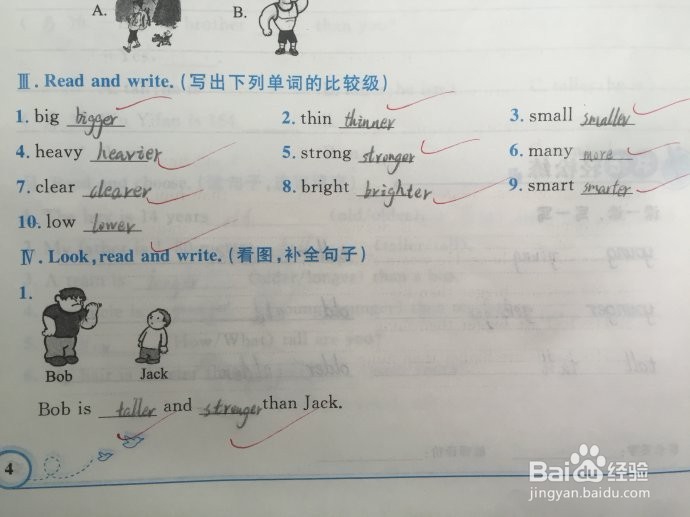 A. B.
Ⅲ. Read and write. (写出下列单词的比较级)
1. big bigger 2. thin thinner 3. small smaller
4. heavy heavier 5. strong stronger 6. many more
7. clear clearer 8. bright brighter 9. smart smarter
10. low lower
Ⅳ. Look, read and write. (看图,补全句子)
1.
Bob Jack
Bob is taller and stronger than Jack.
4
Baidu 经验
jingyan.baidu.com